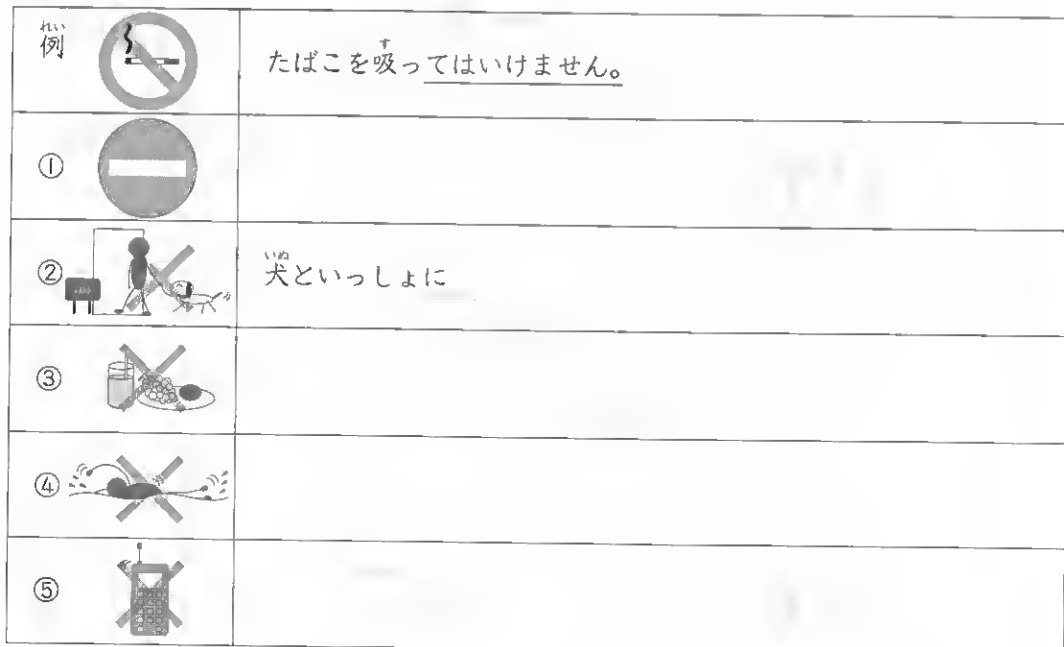 例 れい
たばこを吸ってはいけません。 す
①
②
犬といっしょに いぬ
③
④
⑤